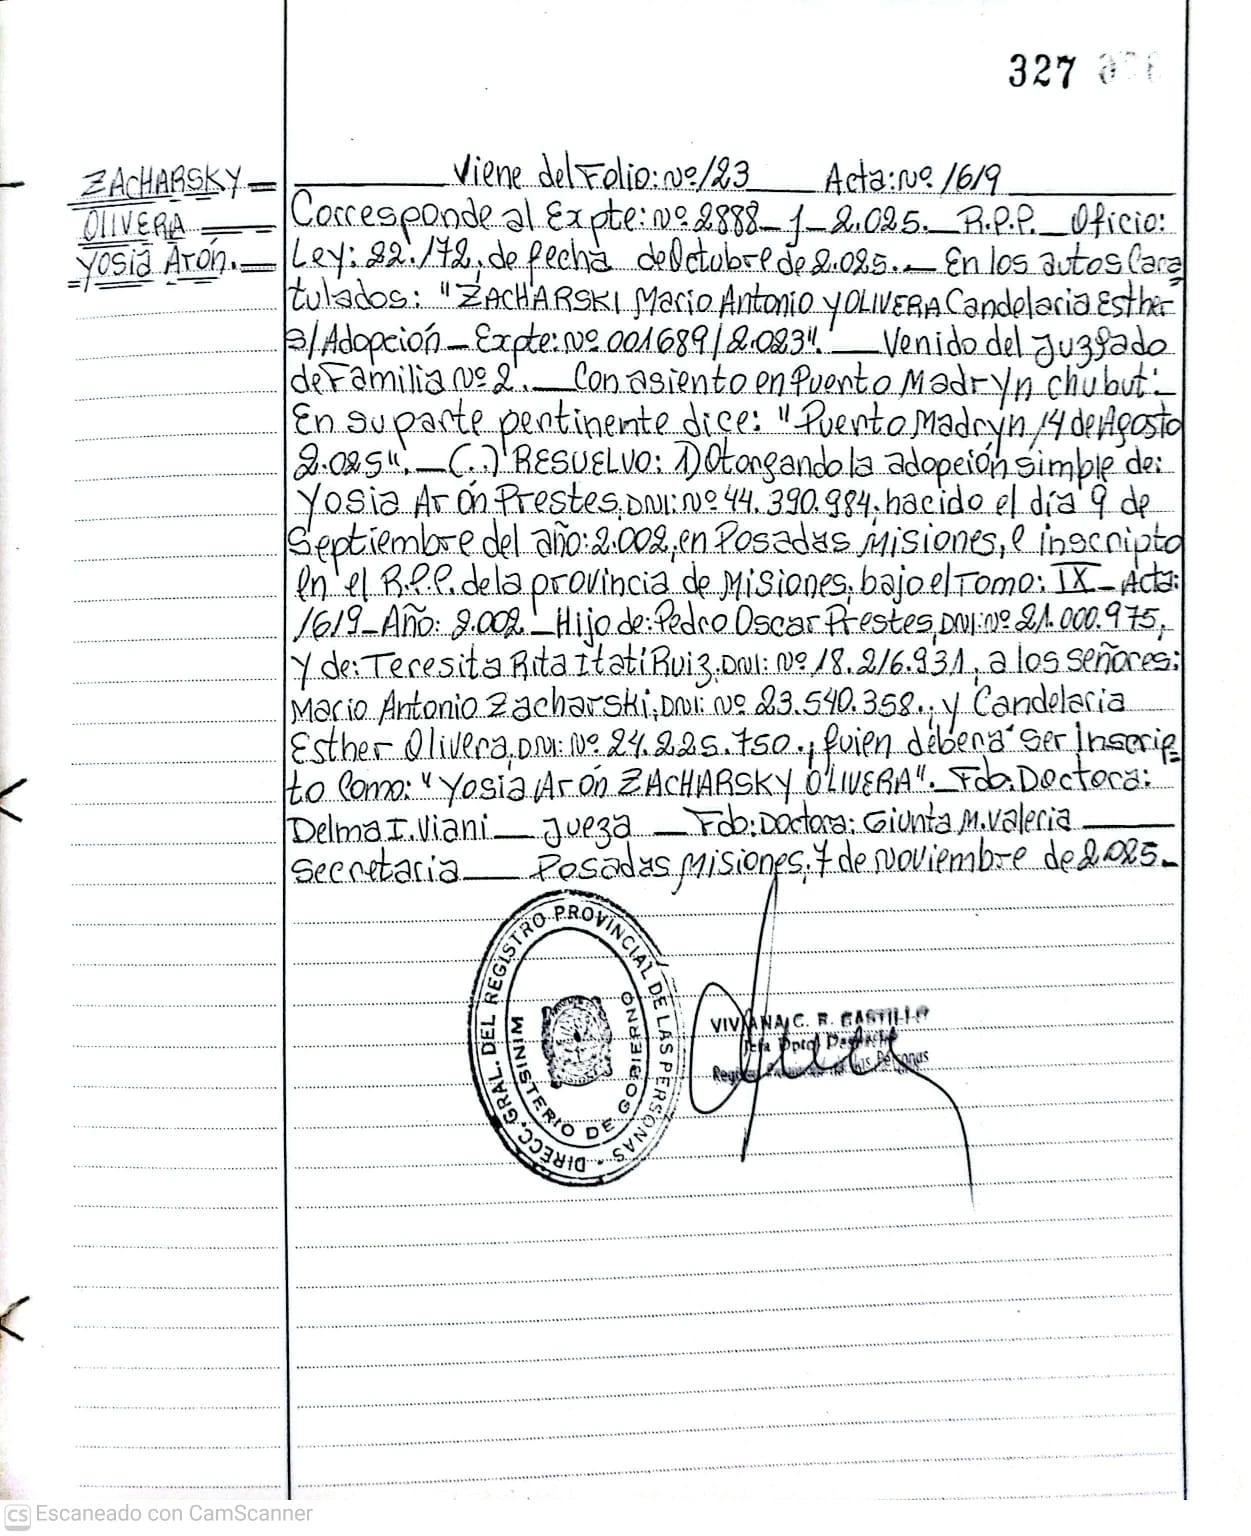 327
ZACHARSKY
OLIVERA
Yosia Arón.
Viene del Folio: Nº 123 Acta: Nº 1619
Corresponde al Expte: Nº 2888-J-2.025. R.P.P. Oficio:
Ley: 22.172, de fecha de Octubre de 2.025.- En los autos Cara=
tulados: "ZACHARSKI Mario Antonio Y OLIVERA Candelaria Esther
S/ Adopción - Expte: Nº 001689/2.023". Venido del Juzgado
de Familia Nº 2. Con asiento en Puerto Madryn Chubut:
En su parte pertinente dice: "Puerto Madryn 14 de Agosto
2.025". (..) RESUELVO: 1) Otorgando la adopción simple de:
Yosia Arón Prestes, DNI: Nº 44.390.984, nacido el día 9 de
Septiembre del año: 2.002, en Posadas Misiones, e inscripto
en el R.P.P. de la provincia de Misiones, bajo el Tomo: IX - Acta:
1619 - Año: 2.002 - Hijo de: Pedro Oscar Prestes, DNI: Nº 21.000.975,
Y de: Teresita Rita Itatí Ruiz, DNI: Nº 18.216.931, a los señores:
Mario Antonio Zacharski, DNI: Nº 23.540.358., y Candelaria
Esther Olivera, DNI: Nº 24.225.750., quien deberá ser Inscrip=
to Como: "Yosia Arón ZACHARSKY OLIVERA". Fdo: Doctora:
Delma I. Viani Jueza Fdo: Doctora: Giunta M. Valeria
Secretaria Posadas Misiones, 7 de Noviembre de 2.025.-
DIRECC. GRAL. DEL REGISTRO PROVINCIAL DE LAS PERSONAS
MINISTERIO DE GOBIERNO
VIVIANA C. R. CASTILLO
Jefa Dpto. Despacho
Registro Provincial de las Personas
CS Escaneado con CamScanner